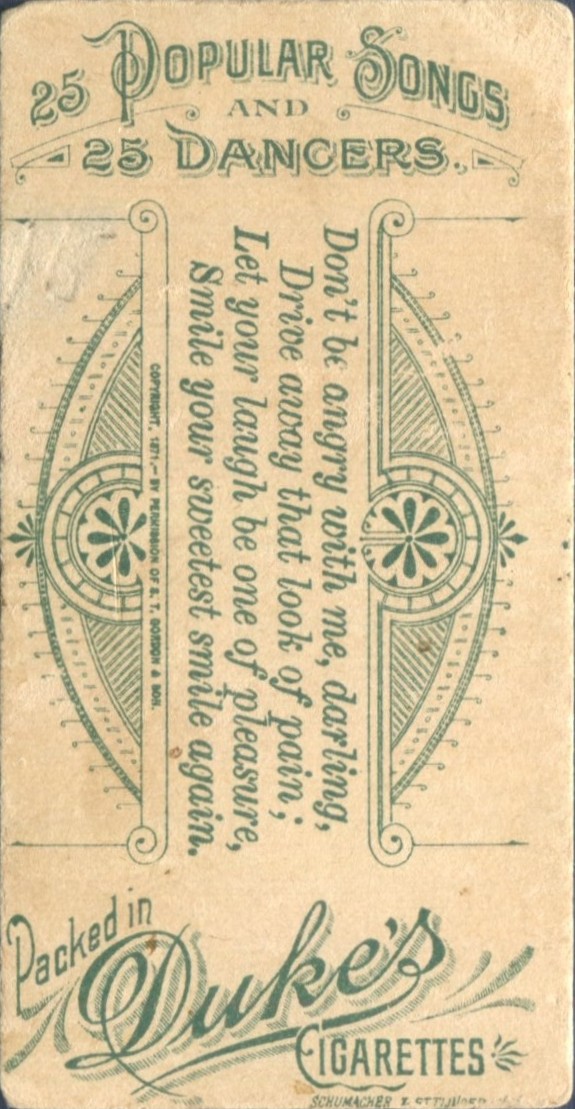 25 POPULAR SONGS
AND
25 DANCERS.
Don't be angry with me, darling,
Drive away that look of pain;
Let your laugh be one of pleasure,
Smile your sweetest smile again.
COPYRIGHT, 1871.—BY PERMISSION OF S. T. GORDON & SON.
Packed in
Duke's
CIGARETTES
SCHUMACHER &